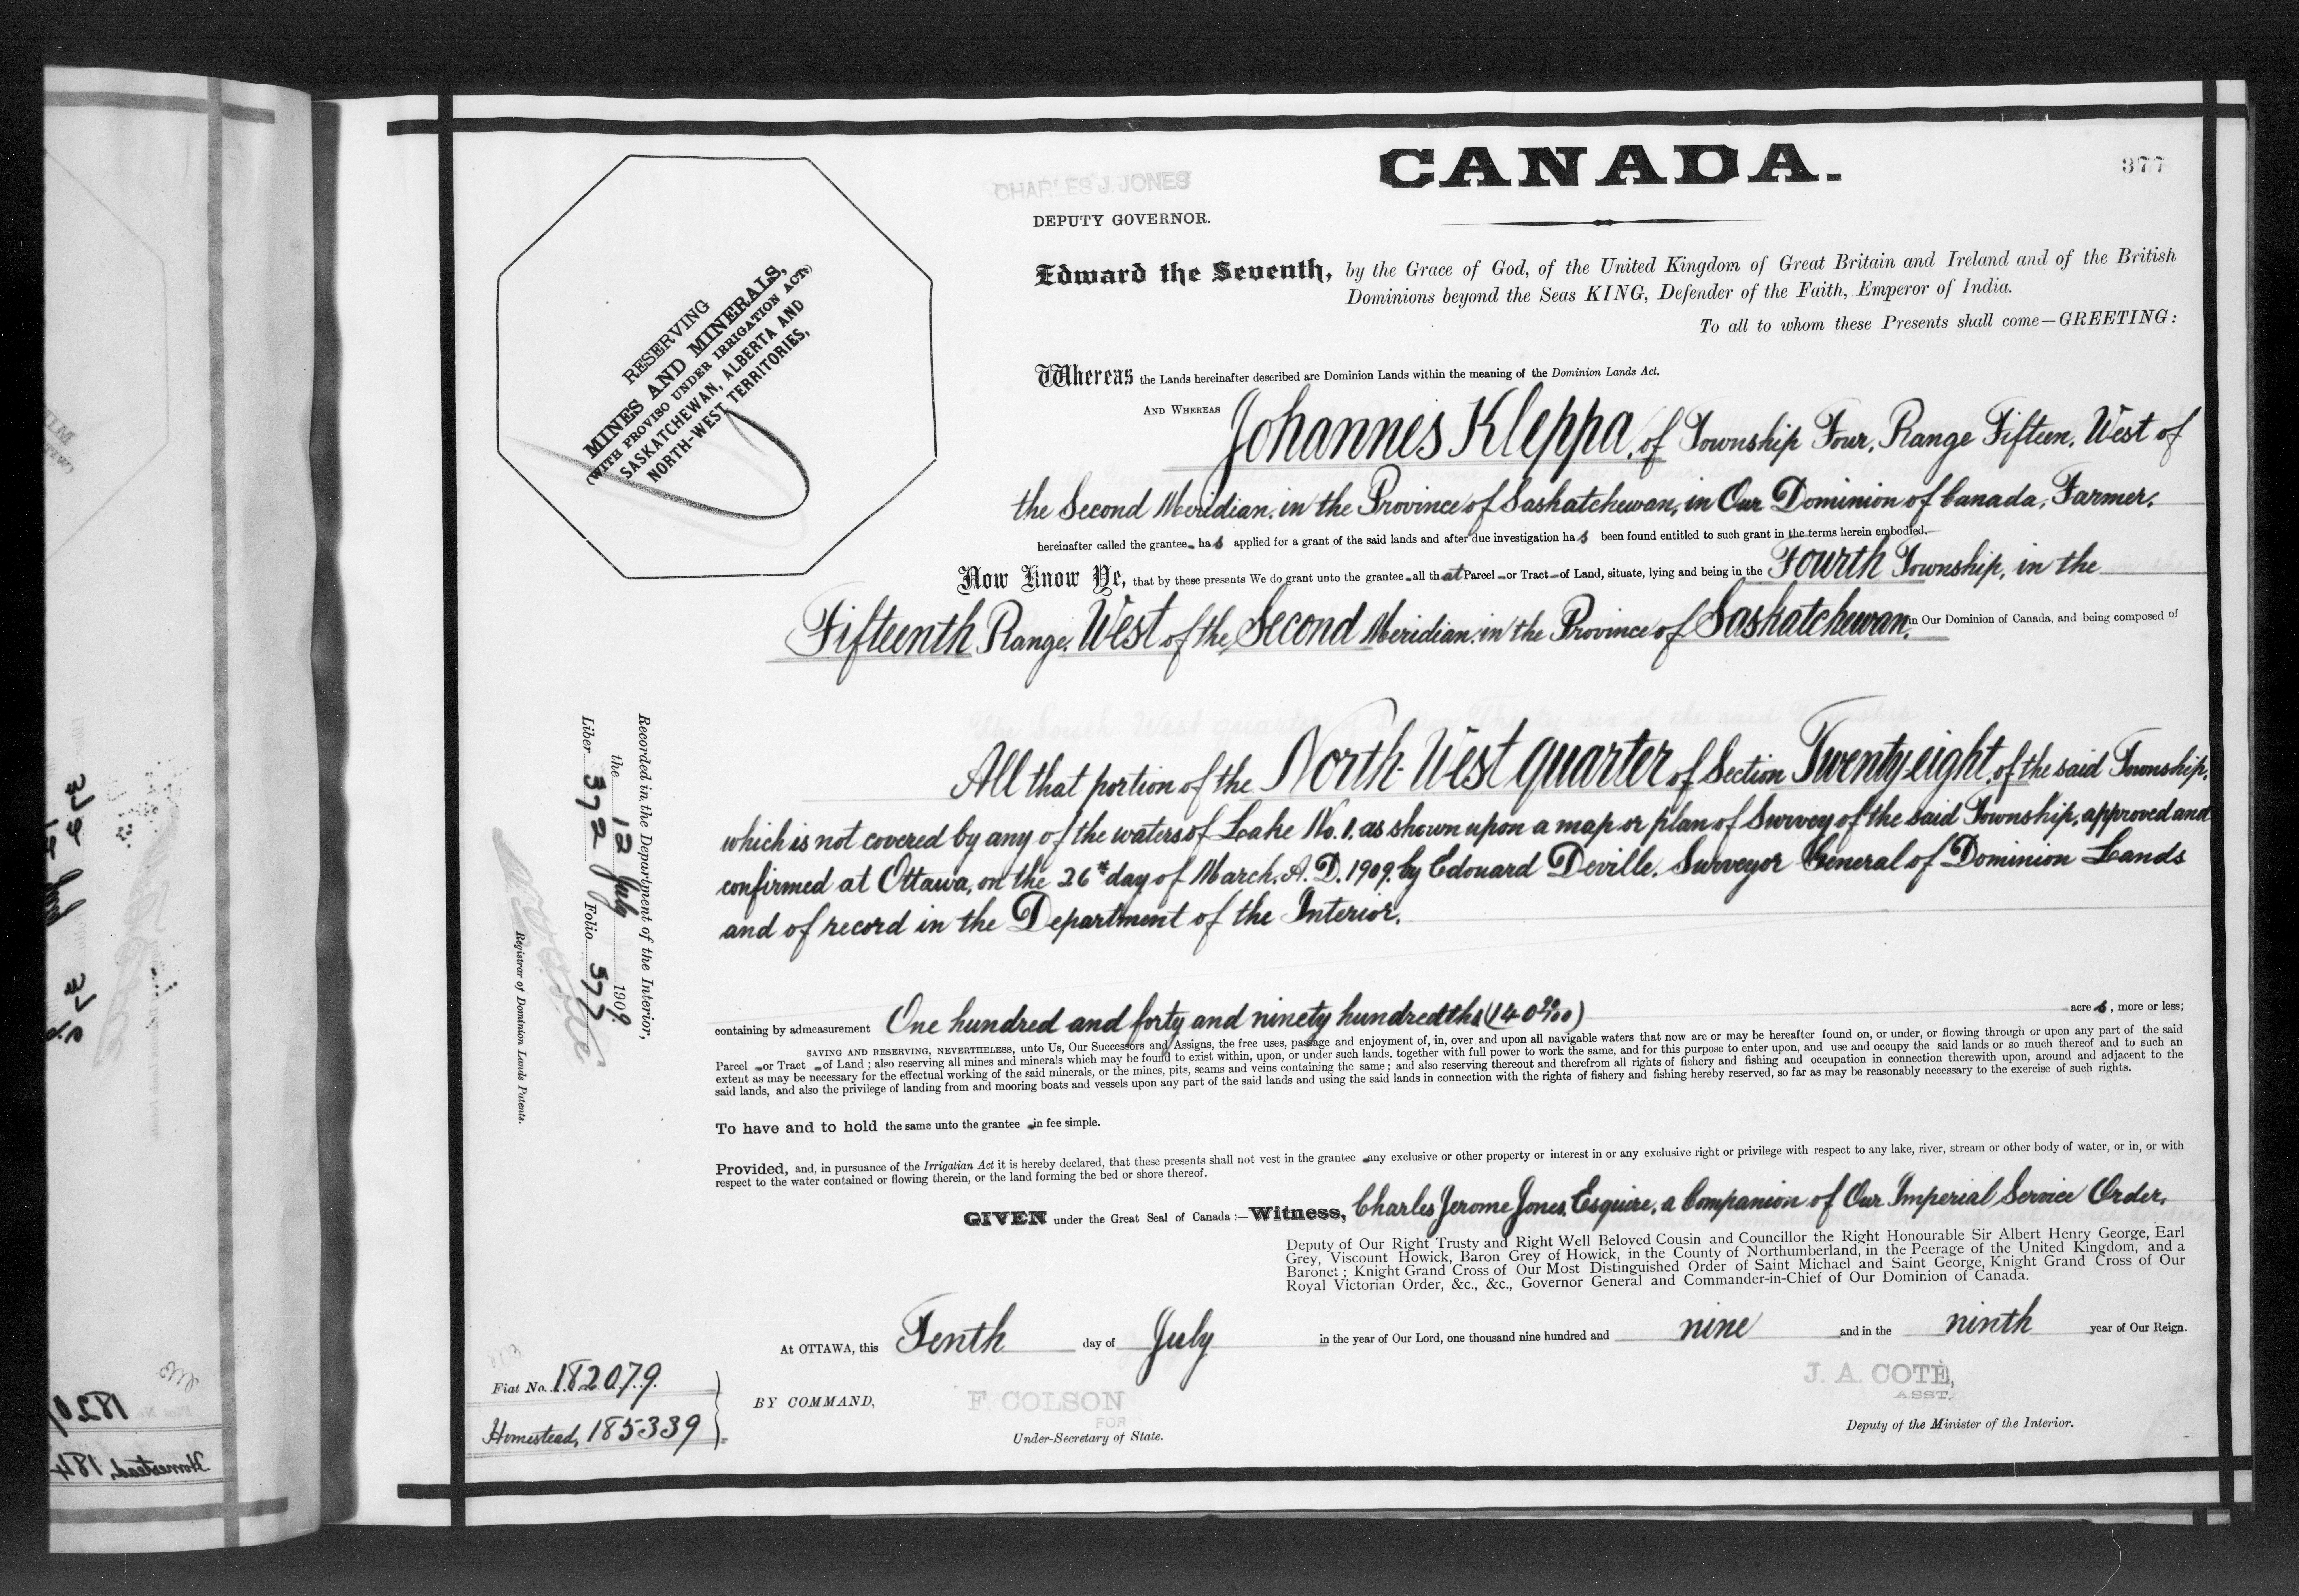 CANADA.
377
CHARLES J. JONES
DEPUTY GOVERNOR.
Edward the Seventh, by the Grace of God, of the United Kingdom of Great Britain and Ireland and of the British
Dominions beyond the Seas KING, Defender of the Faith, Emperor of India.
To all to whom these Presents shall come—GREETING:
RESERVING
MINES AND MINERALS,
(WITH PROVISO UNDER IRRIGATION ACT.)
SASKATCHEWAN, ALBERTA AND
NORTH-WEST TERRITORIES,
Whereas the Lands hereinafter described are Dominion Lands within the meaning of the Dominion Lands Act.
AND WHEREAS Johannes Kleppa, of Township Four, Range Fifteen, West of
the Second Meridian, in the Province of Saskatchewan, in Our Dominion of Canada, Farmer,
hereinafter called the grantee, has applied for a grant of the said lands and after due investigation has been found entitled to such grant in the terms herein embodied.
Now Know Ye, that by these presents We do grant unto the grantee all that Parcel or Tract of Land, situate, lying and being in the Fourth Township, in the
Fifteenth Range, West of the Second Meridian, in the Province of Saskatchewan, in Our Dominion of Canada, and being composed of
All that portion of the North-West quarter of Section Twenty eight, of the said Township,
which is not covered by any of the waters of Lake No. 1, as shown upon a map or plan of Survey of the said Township, approved and
confirmed at Ottawa, on the 26th day of March, A. D. 1909, by Edouard Deville, Surveyor General of Dominion Lands
and of record in the Department of the Interior.
Recorded in the Department of the Interior,
the 12 July 1909.
Liber 372 Folio 377
Registrar of Dominion Lands Patents.
containing by admeasurement One hundred and forty and ninety hundredths (140 90/100) acres, more or less;
SAVING AND RESERVING, NEVERTHELESS, unto Us, Our Successors and Assigns, the free uses, passage and enjoyment of, in, over and upon all navigable waters that now are or may be hereafter found on, or under, or flowing through or upon any part of the said
Parcel or Tract of Land; also reserving all mines and minerals which may be found to exist within, upon, or under such lands, together with full power to work the same, and for this purpose to enter upon, and use and occupy the said lands or so much thereof and to such an
extent as may be necessary for the effectual working of the said minerals, or the mines, pits, seams and veins containing the same; and also reserving thereout and therefrom all rights of fishery and fishing and occupation in connection therewith upon, around and adjacent to the
said lands, and also the privilege of landing from and mooring boats and vessels upon any part of the said lands and using the said lands in connection with the rights of fishery and fishing hereby reserved, so far as may be reasonably necessary to the exercise of such rights.
To have and to hold the same unto the grantee in fee simple.
Provided, and, in pursuance of the Irrigatian Act it is hereby declared, that these presents shall not vest in the grantee any exclusive or other property or interest in or any exclusive right or privilege with respect to any lake, river, stream or other body of water, or in, or with
respect to the water contained or flowing therein, or the land forming the bed or shore thereof.
GIVEN under the Great Seal of Canada:—Witness, Charles Jerome Jones, Esquire, a Companion of Our Imperial Service Order,
Deputy of Our Right Trusty and Right Well Beloved Cousin and Councillor the Right Honourable Sir Albert Henry George, Earl
Grey, Viscount Howick, Baron Grey of Howick, in the County of Northumberland, in the Peerage of the United Kingdom, and a
Baronet; Knight Grand Cross of Our Most Distinguished Order of Saint Michael and Saint George, Knight Grand Cross of Our
Royal Victorian Order, &c., &c., Governor General and Commander-in-Chief of Our Dominion of Canada.
At OTTAWA, this Tenth day of July in the year of Our Lord, one thousand nine hundred and nine and in the ninth year of Our Reign.
Fiat No. 182079
Homestead, 185339
BY COMMAND,
F. COLSON
FOR
Under-Secretary of State.
J. A. COTÉ,
ASST.
Deputy of the Minister of the Interior.